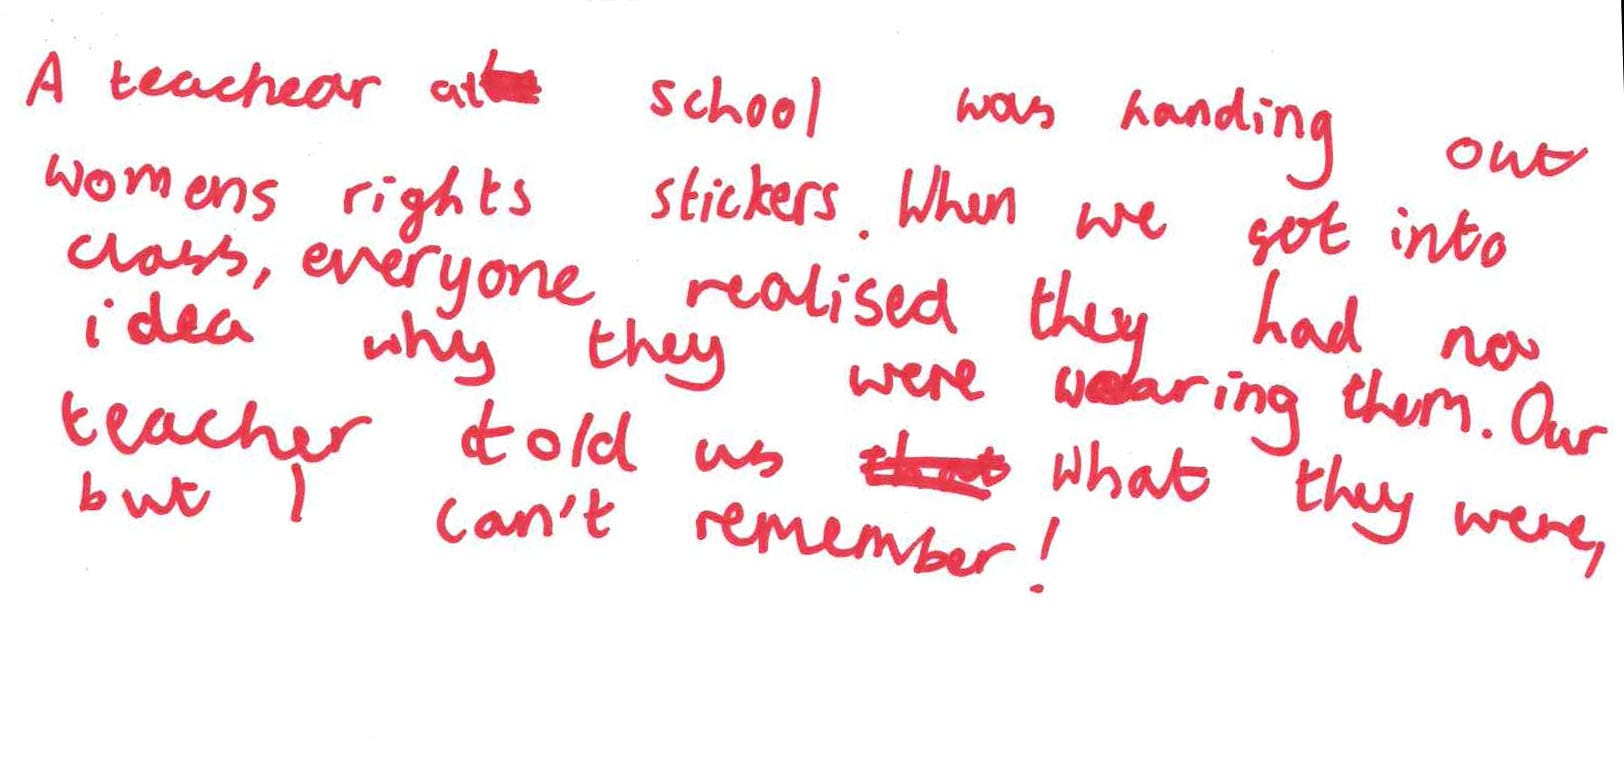 A teachear at school was handing out
womens rights stickers. When we got into
class, everyone realised they had no
idea why they were wearing them. Our
teacher told us what they were,
but I can't remember!